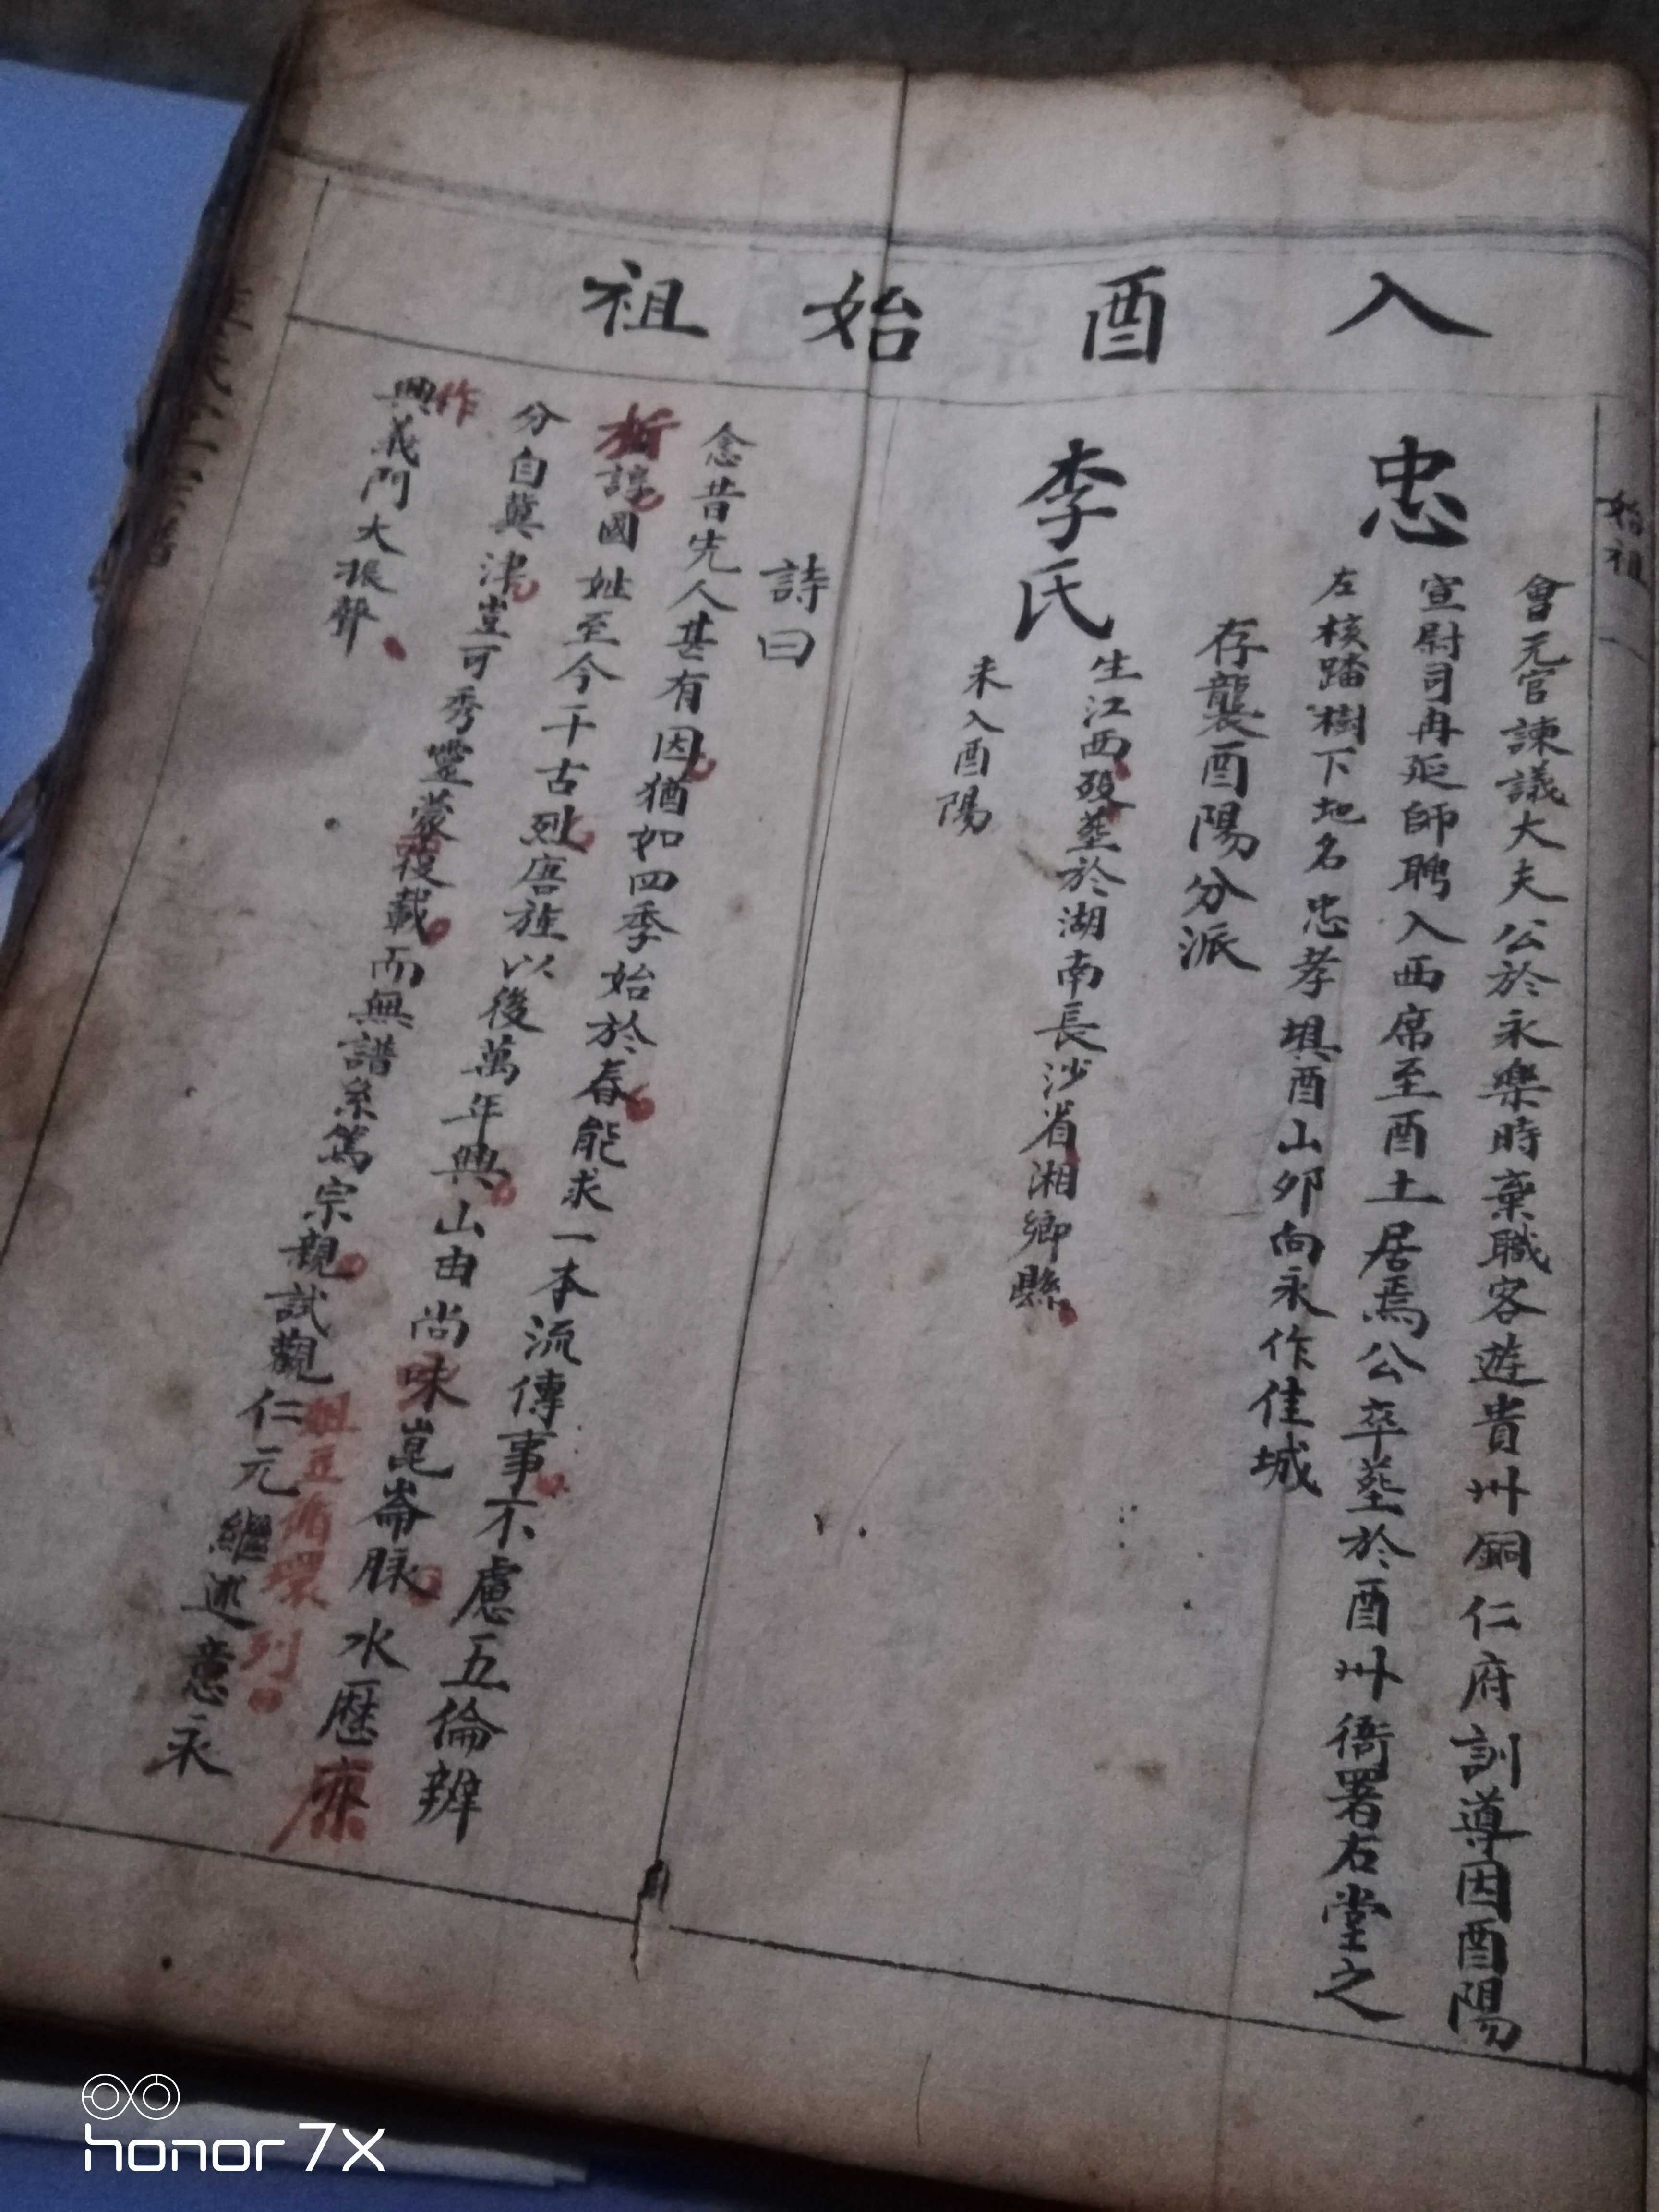 入酉始祖
始祖
忠
會元官諫議大夫公於永樂時棄職客遊貴州銅仁府訓導因酉陽
宣尉司冉延師聘入西席至酉土居焉公卒塟於酉州衙署右堂之
左核踏樹下地名忠孝塤酉山夘向永作佳城
存襲酉陽分派
李氏
生江西歿塟於湖南長沙省湘鄉縣
未入酉陽
詩曰
念昔先人甚有因猶如四季始於春能求一本流傳事不慮五倫辨
諄國姓至今千古烈唐旌以後萬年興山由尚味崑崙脉水歷
分自冀津豈可秀靈蒙後載而無譜系篤宗親試觀仁元繼述意永
作
祖五循環列
興義門大振聲
honor 7X